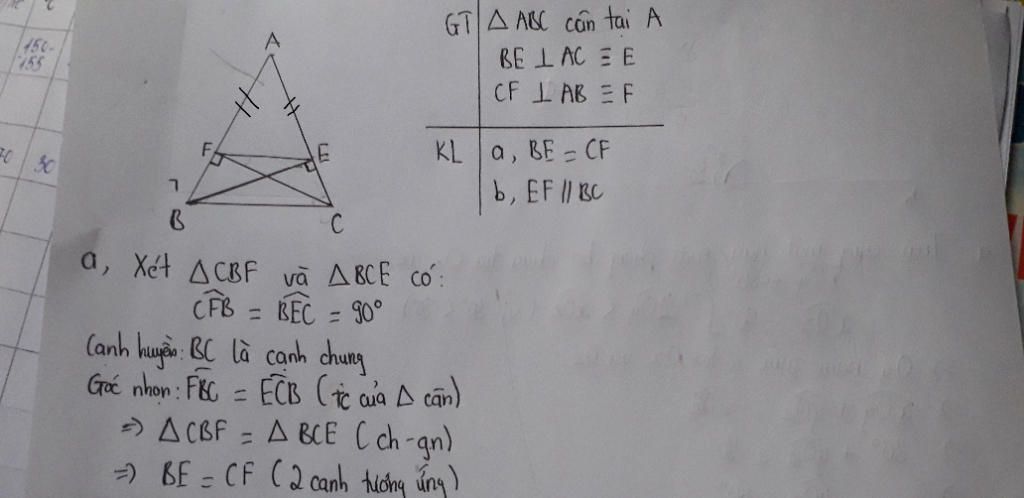 150-
155
70 30
A
F E
B C
GT △ ABC cân tại A
BE ⊥ AC ≡ E
CF ⊥ AB ≡ F
KL a, BE = CF
b, EF // BC
a, Xét △CBF và △BCE có:
CFB̂ = BÊC = 90°
Cạnh huyền: BC là cạnh chung
Góc nhọn: FBĈ = EĈB (tc của △ cân)
=> △CBF = △ BCE (ch-gn)
=> BE = CF (2 cạnh tương ứng)